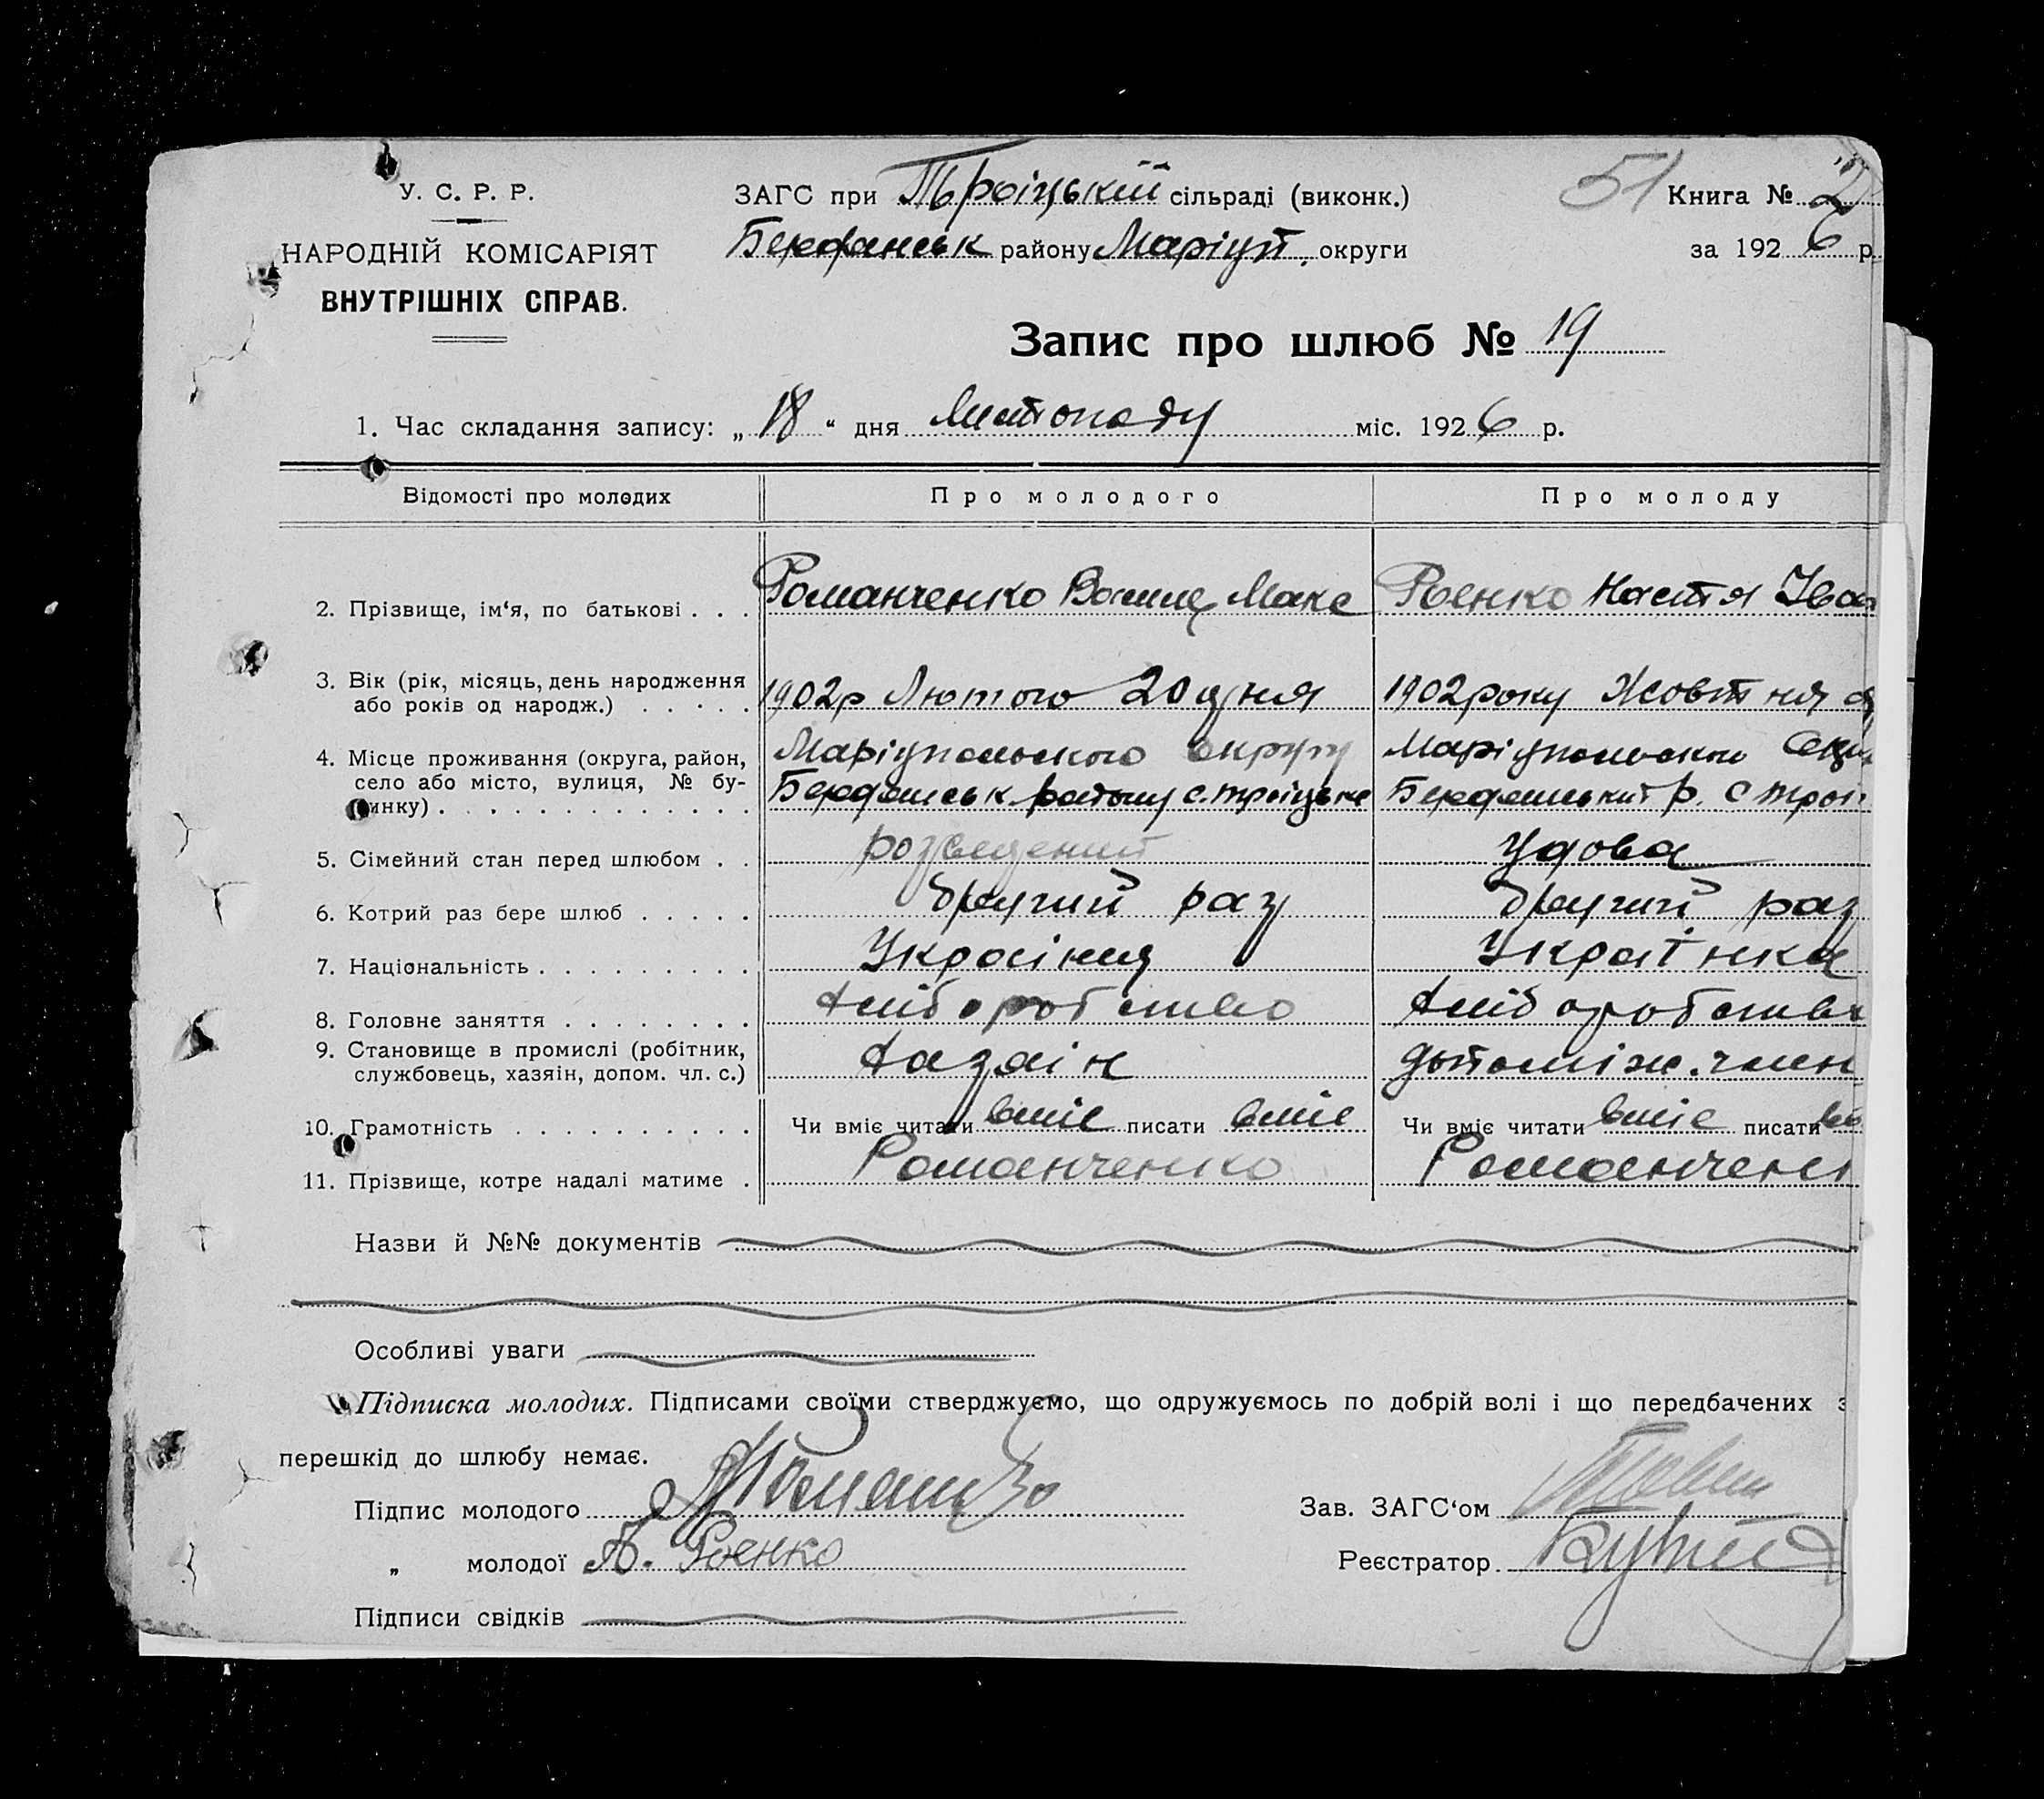 У. С. Р. Р.
НАРОДНІЙ КОМІСАРІЯТ
ВНУТРІШНІХ СПРАВ.
ЗАГС при Тьроіцькій сільраді (виконк.)
Бердянськ району Маріуп. округи
51 Книга № 2
за 1926 р.
Запис про шлюб № 19
1. Час складання запису: „18“ дня Листопаду міс. 1926 р.
Відомості про молодих Про молодого Про молоду
2. Прізвище, ім‘я, по батькові . . . Романченко Макс Роенко Настя Іван
3. Вік (рік, місяць, день народження
або років од народж.) . . . . . 1902р Лютого 20 дня 1902 року Жовтня
4. Місце проживання (округа, район, Маріупольского округу Маріупольского
село або місто, вулиця, № бу- Бердянськ району с. Троіцьке Бердянський р. с Трои
динку) . . . . . . . . . . . . .
5. Сімейний стан перед шлюбом . . розведений Удова
6. Котрий раз бере шлюб . . . . . другий раз другий раз
7. Національність . . . . . . . . . Украінец Украінка
8. Головне заняття . . . . . . . . хліборобство хліборобств
9. Становище в промислі (робітник,
службовець, хазяін, допом. чл. с.) хазяін допоміж. член
10. Грамотність . . . . . . . . . . Чи вміє читати вміє писати вміє Чи вміє читати вміє писати
11. Прізвище, котре надалі матиме . Романченко Романчен
Назви й №№ документів
Особливі уваги
Підписка молодих. Підписами своїми стверджуємо, що одружуємось по добрій волі і що передбачених з
перешкід до шлюбу немає.
Підпис молодого
„ молодої А. Роенко
Підписи свідків
Зав. ЗАГС‘ом
Реєстратор